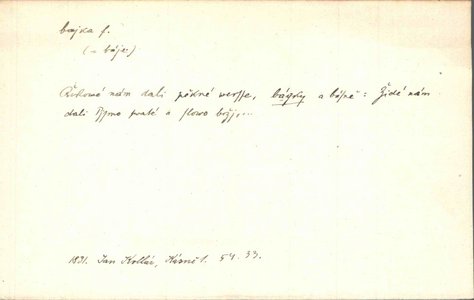 bajka f.
(= báje)
Řekowé nám dali pěkné wersse, bágky a básně: Židé nám
dali Pjsmo swaté a slowo božj,...
1831. Jan Kollár, Kázně I. 54. 33.